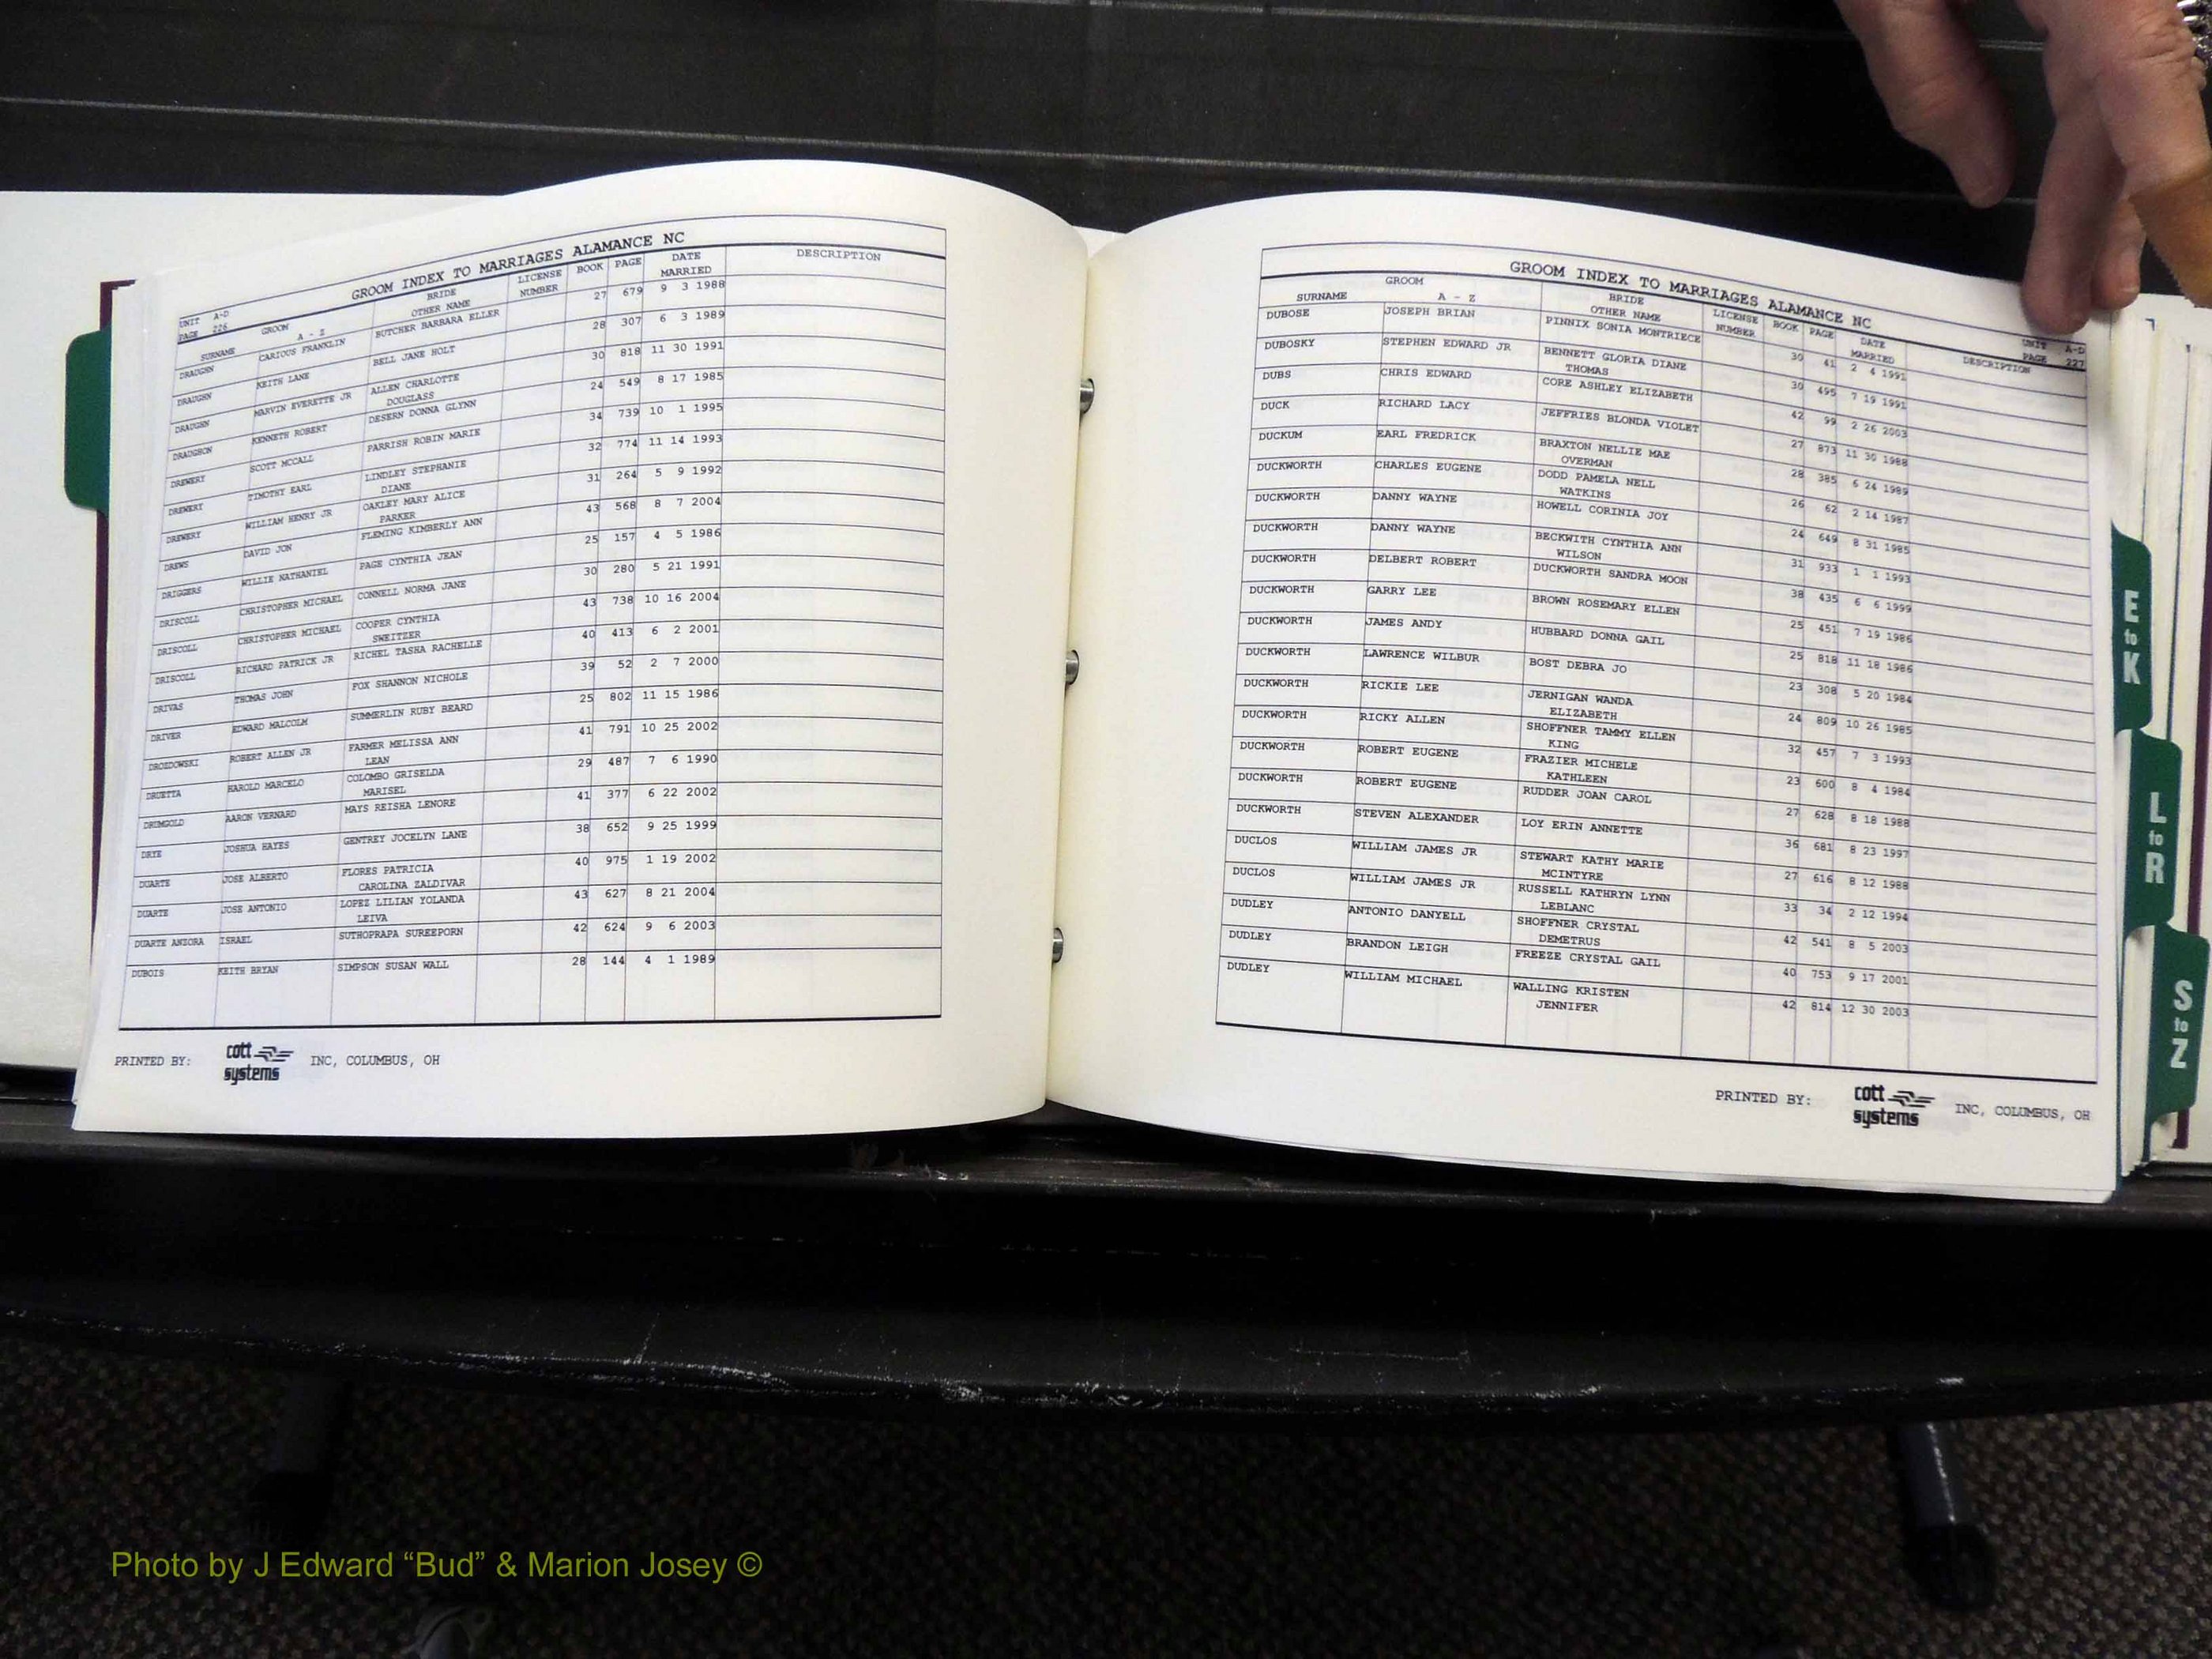 GROOM INDEX TO MARRIAGES ALAMANCE NC
UNIT A-D
PAGE 226
SURNAME GROOM A - Z BRIDE OTHER NAME LICENSE NUMBER BOOK PAGE DATE MARRIED DESCRIPTION
DRAUGHN CARIOUS FRANKLIN BUTCHER BARBARA ELLER 27 679 9 3 1988
DRAUGHN KEITH LANE BELL JANE HOLT 28 307 6 3 1989
DRAUGHN MARVIN EVERETTE JR ALLEN CHARLOTTE 30 818 11 30 1991
DOUGLASS
DRAUGHON KENNETH ROBERT DESERN DONNA GLYNN 24 549 8 17 1985
DREWERY SCOTT MCCALL PARRISH ROBIN MARIE 34 739 10 1 1995
DREWERY TIMOTHY EARL LINDLEY STEPHANIE 32 774 11 14 1993
DIANE
DREWERY WILLIAM HENRY JR OAKLEY MARY ALICE 31 264 5 9 1992
PARKER
DREWS DAVID JON FLEMING KIMBERLY ANN 43 568 8 7 2004
DRIGGERS WILLIE NATHANIEL PAGE CYNTHIA JEAN 25 157 4 5 1986
DRISCOLL CHRISTOPHER MICHAEL CONNELL NORMA JANE 30 280 5 21 1991
DRISCOLL CHRISTOPHER MICHAEL COOPER CYNTHIA 43 738 10 16 2004
SWEITZER
DRISCOLL RICHARD PATRICK JR RICHEL TASHA RACHELLE 40 413 6 2 2001
DRIVAS THOMAS JOHN FOX SHANNON NICHOLE 39 52 2 7 2000
DRIVER EDWARD MALCOLM SUMMERLIN RUBY BEARD 25 802 11 15 1986
DROZDOWSKI ROBERT ALLEN JR FARMER MELISSA ANN 41 791 10 25 2002
LEAN
DRUETTA HAROLD MARCELO COLOMBO GRISELDA 29 487 7 6 1990
MARISEL
DRUMGOLD AARON VERNARD MAYS REISHA LENORE 41 377 6 22 2002
DRYE JOSHUA HAYES GENTREY JOCELYN LANE 38 652 9 25 1999
DUARTE JOSE ALBERTO FLORES PATRICIA 40 975 1 19 2002
CAROLINA ZALDIVAR
DUARTE JOSE ANTONIO LOPEZ LILIAN YOLANDA 43 627 8 21 2004
LEIVA
DUARTE ANZORA ISRAEL SUTHOPRAPA SUREEPORN 42 624 9 6 2003
DUBOIS KEITH BRYAN SIMPSON SUSAN WALL 28 144 4 1 1989
PRINTED BY: cott systems INC, COLUMBUS, OH
GROOM INDEX TO MARRIAGES ALAMANCE NC
UNIT A-D
PAGE 227
SURNAME GROOM A - Z BRIDE OTHER NAME LICENSE NUMBER BOOK PAGE DATE MARRIED DESCRIPTION
DUBOSE JOSEPH BRIAN PINNIX SONIA MONTRIECE 30 41 2 4 1991
DUBOSKY STEPHEN EDWARD JR BENNETT GLORIA DIANE 30 495 7 19 1991
THOMAS
DUBS CHRIS EDWARD CORE ASHLEY ELIZABETH 42 99 2 26 2003
DUCK RICHARD LACY JEFFRIES BLONDA VIOLET 27 873 11 30 1988
DUCKUM EARL FREDRICK BRAXTON NELLIE MAE 28 385 6 24 1989
OVERMAN
DUCKWORTH CHARLES EUGENE DODD PAMELA NELL 26 62 2 14 1987
WATKINS
DUCKWORTH DANNY WAYNE HOWELL CORINIA JOY 24 649 8 31 1985
DUCKWORTH DANNY WAYNE BECKWITH CYNTHIA ANN 31 933 1 1 1993
WILSON
DUCKWORTH DELBERT ROBERT DUCKWORTH SANDRA MOON 38 435 6 6 1999
DUCKWORTH GARRY LEE BROWN ROSEMARY ELLEN 25 451 7 19 1986
DUCKWORTH JAMES ANDY HUBBARD DONNA GAIL 25 818 11 18 1986
DUCKWORTH LAWRENCE WILBUR BOST DEBRA JO 23 308 5 20 1984
DUCKWORTH RICKIE LEE JERNIGAN WANDA 24 809 10 26 1985
ELIZABETH
DUCKWORTH RICKY ALLEN SHOFFNER TAMMY ELLEN 32 457 7 3 1993
KING
DUCKWORTH ROBERT EUGENE FRAZIER MICHELE 23 600 8 4 1984
KATHLEEN
DUCKWORTH ROBERT EUGENE RUDDER JOAN CAROL 27 628 8 18 1988
DUCKWORTH STEVEN ALEXANDER LOY ERIN ANNETTE 36 681 8 23 1997
DUCLOS WILLIAM JAMES JR STEWART KATHY MARIE 27 616 8 12 1988
MCINTYRE
DUCLOS WILLIAM JAMES JR RUSSELL KATHRYN LYNN 33 34 2 12 1994
LEBLANC
DUDLEY ANTONIO DANYELL SHOFFNER CRYSTAL 42 541 8 5 2003
DEMETRUS
DUDLEY BRANDON LEIGH FREEZE CRYSTAL GAIL 40 753 9 17 2001
DUDLEY WILLIAM MICHAEL WALLING KRISTEN 42 814 12 30 2003
JENNIFER
PRINTED BY: cott systems INC, COLUMBUS, OH
E to K
L to R
S to Z
Photo by J Edward “Bud” & Marion Josey ©